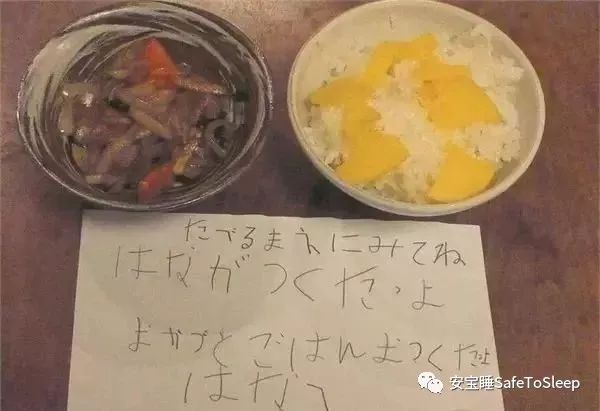 たべるまえにみてね
はながつくたつよ
おかずとごはんおつくたよ
はなへ
安宝睡SafeToSleep